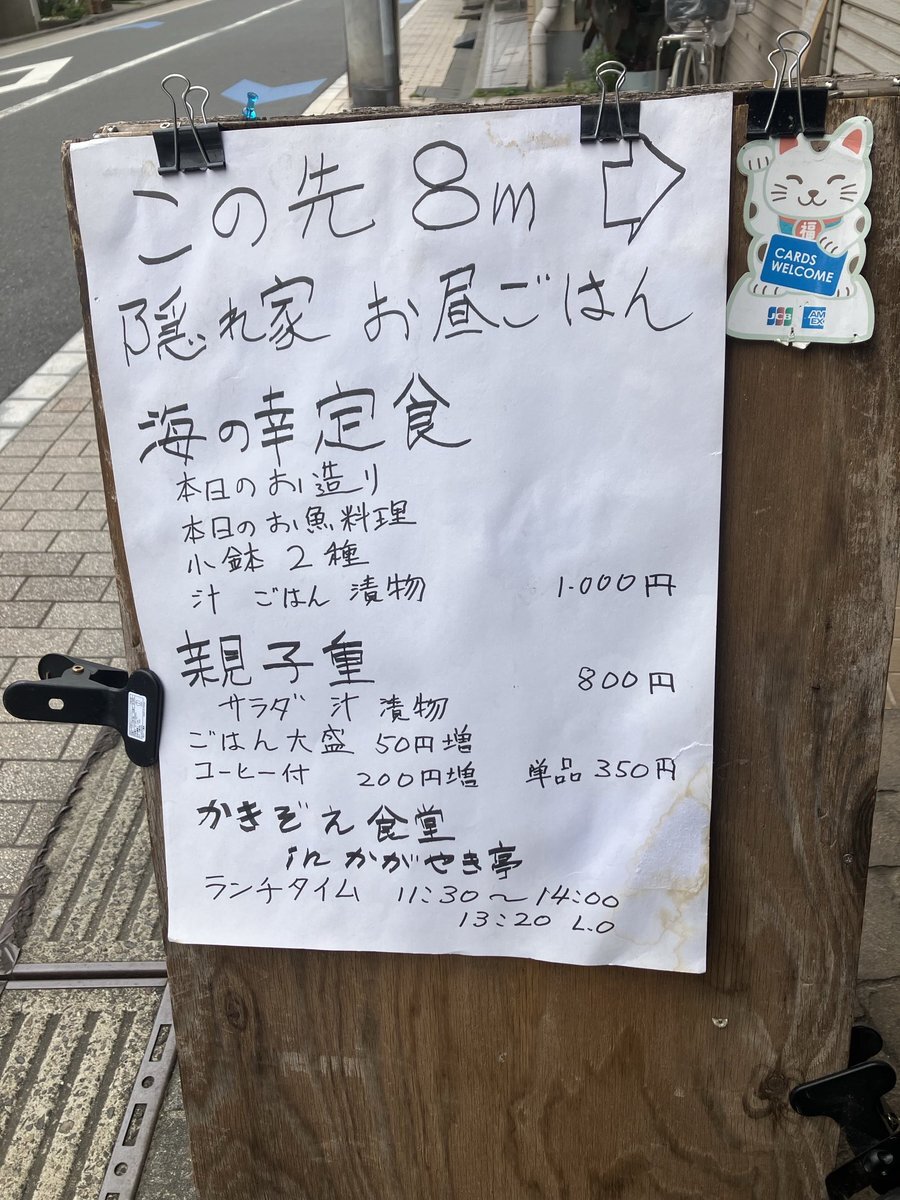 この先 8m ⇨
隠れ家 お昼ごはん
海の幸定食
本日のお造り
本日のお魚料理
小鉢 2種
汁 ごはん 漬物 1.000円
親子重 800円
サラダ 汁 漬物
ごはん大盛 50円増
コーヒー付 200円増 単品 350円
かきぞえ食堂
in かがやき亭
ランチタイム 11:30〜14:00
13:20 L.O
福
CARDS
WELCOME
JCB
AM
EX